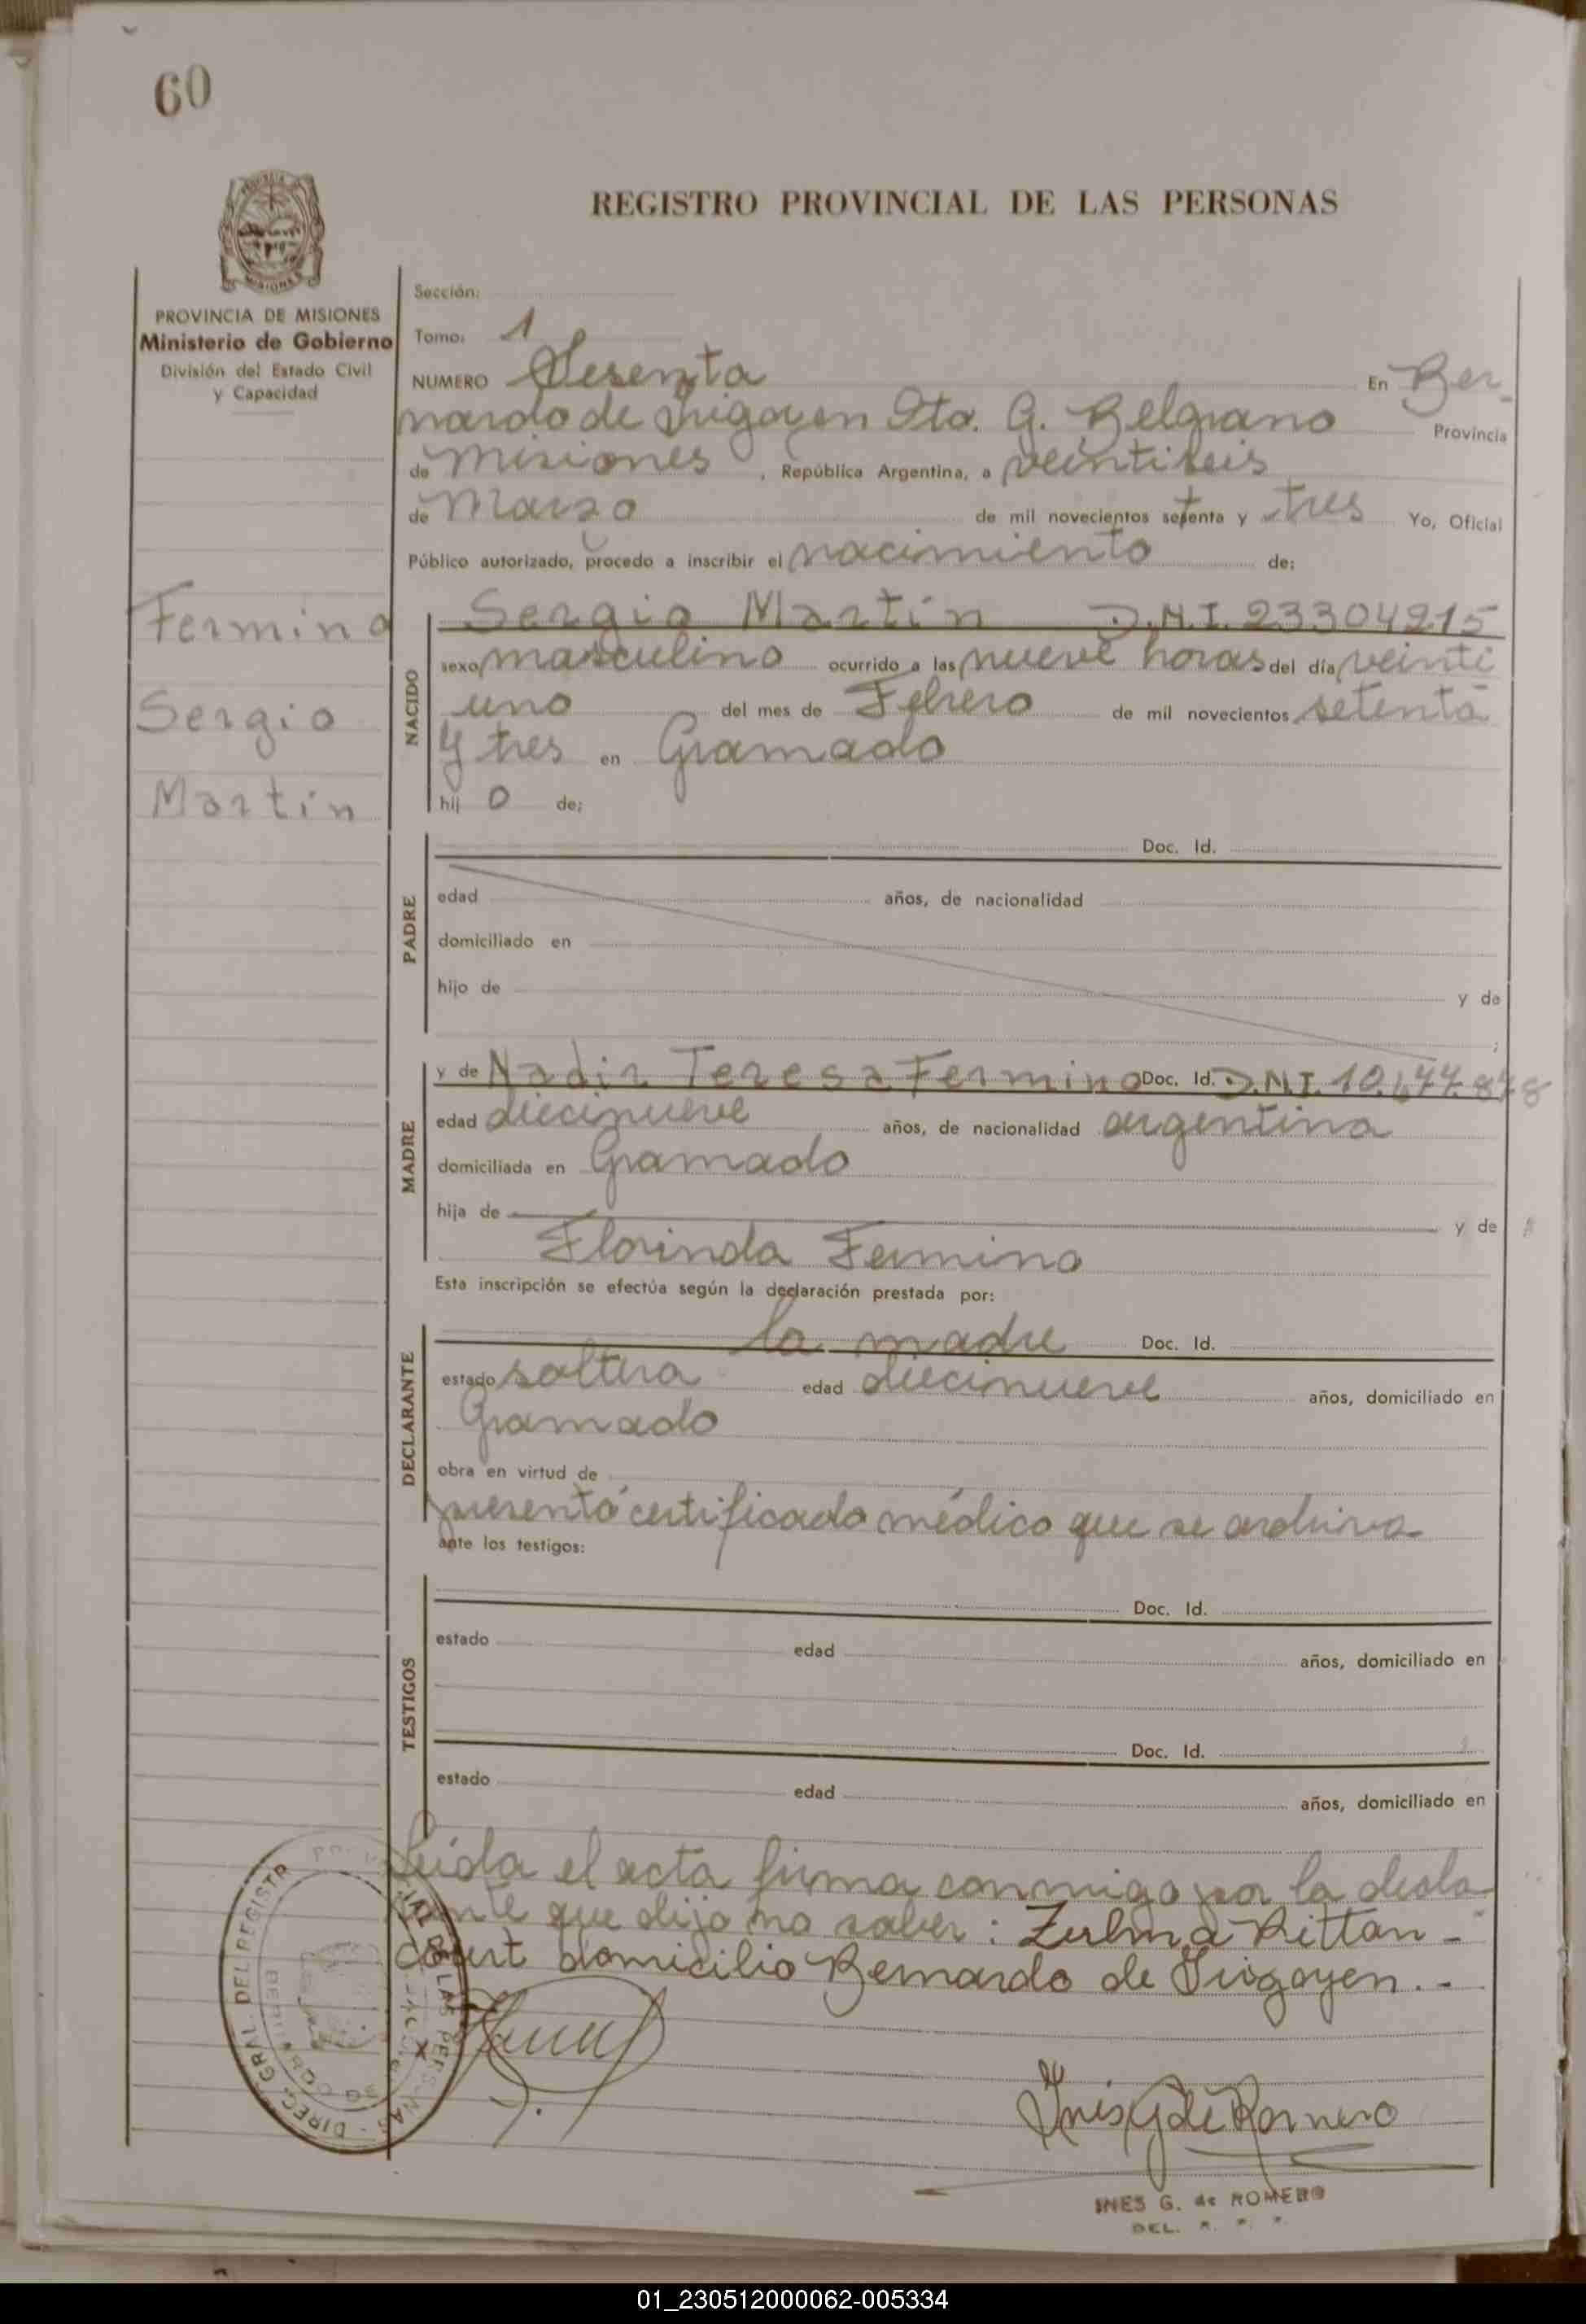 60
REGISTRO PROVINCIAL DE LAS PERSONAS
MISIONES
PROVINCIA DE MISIONES
Ministerio de Gobierno
División del Estado Civil
y Capacidad
Fermino
Sergio
Martin
Sección:
Tomo: 1
NUMERO Sesenta En Ber-
nardo de Irigoyen Dto. G. Belgrano Provincia
de Misiones, República Argentina, a veintiseis
de Marzo de mil novecientos setenta y tres Yo, Oficial
Público autorizado, procedo a inscribir el nacimiento de:
NACIDO
Sergio Martin D.N.I. 23304215
sexo masculino ocurrido a las nueve horas del día veinti
uno del mes de Febrero de mil novecientos setenta
y tres en Gramado
hij o de:
PADRE
Doc. Id.
edad años, de nacionalidad
domiciliado en
hijo de y de
;
MADRE
y de Nadir Teresa Fermino Doc. Id. D.N.I. 10.677.878
edad diecinueve años, de nacionalidad argentina
domiciliada en Gramado
hija de y de
Florinda Fermino
Esta inscripción se efectúa según la declaración prestada por:
DECLARANTE
la madre Doc. Id.
estado soltera edad diecinueve años, domiciliado en
Gramado
obra en virtud de
presentó certificado médico que se archiva
ante los testigos:
TESTIGOS
Doc. Id.
estado edad años, domiciliado en
Doc. Id.
estado edad años, domiciliado en
Leída el acta firma conmigo por la decla
rante que dijo no saber: Zulma Bittan-
court domicilio Bernardo de Irigoyen.-
DIREC. GRAL. DEL REGISTR LAS PERSONAS
Inés G de Romero
INES G. de ROMERO
DEL. R. P. P.
01_230512000062-005334